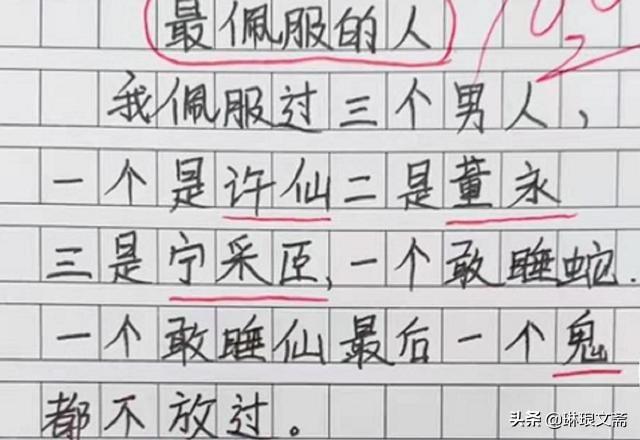 最佩服的人
我佩服过三个男人，
一个是许仙二是董永
三是宁采臣，一个敢睡蛇.
一个敢睡仙最后一个鬼
都不放过。
头条 @琳琅文斋